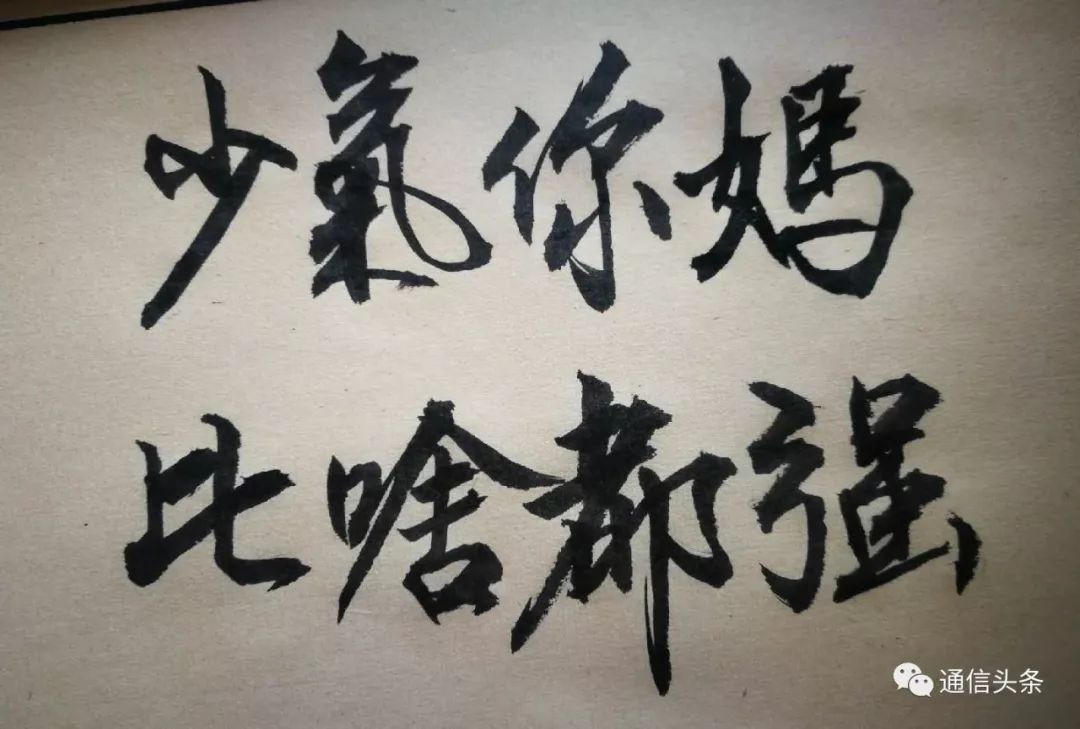 少氣你媽
比啥都强
通信头条